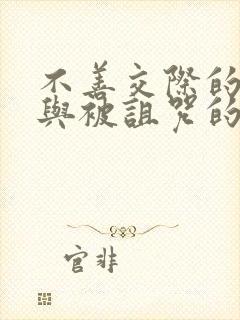 不善交際的
與被詛咒的
官非